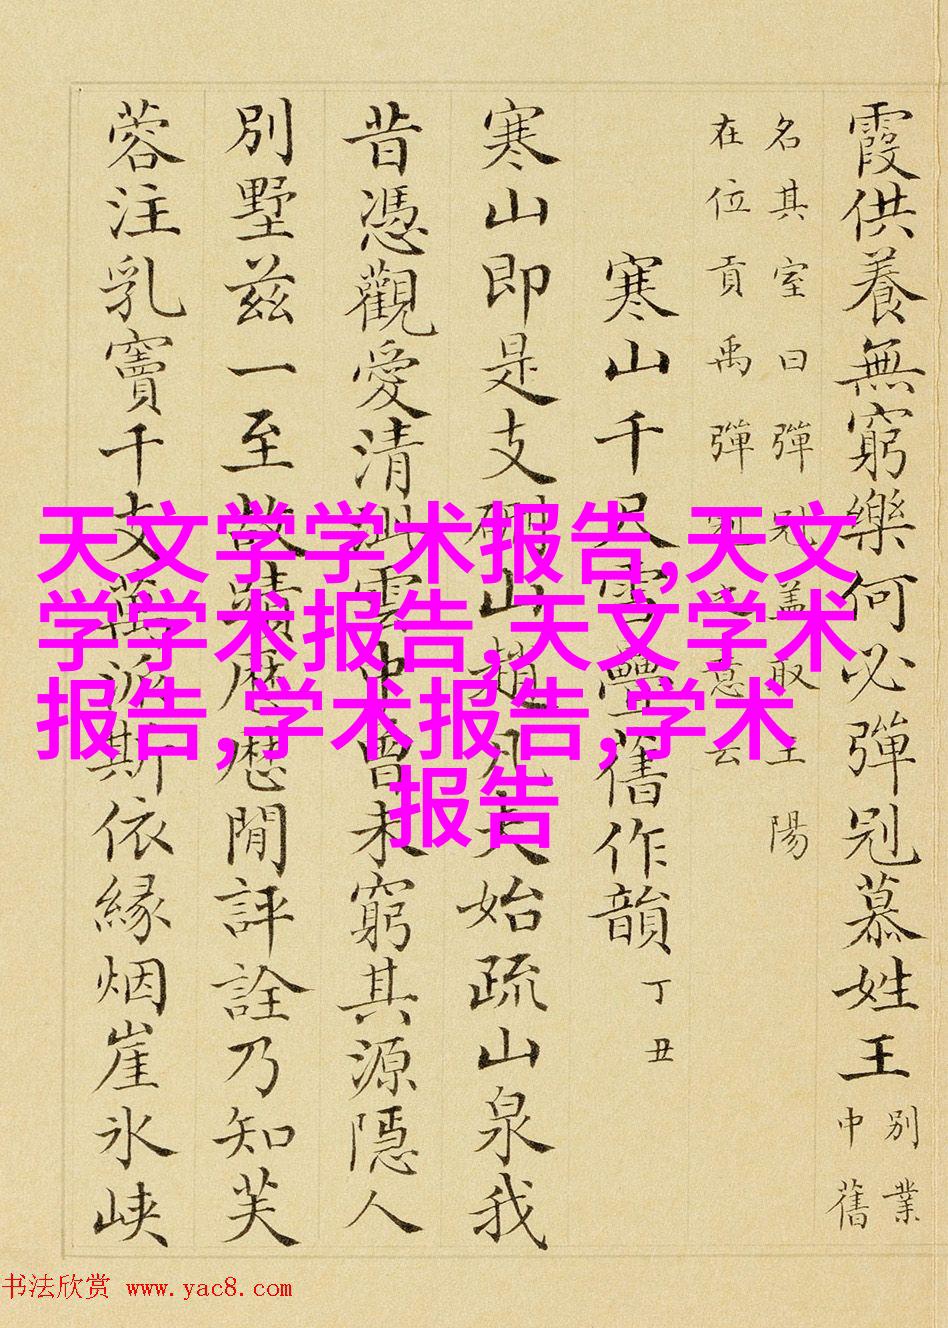 霞供養無窮樂何必彈冠慕姓王
別業
中舊
名其室曰彈冠盖取王陽
在位貢禹彈冠意云
寒山千尺雪疊舊作韻
丁丑
寒山即是支硎山趙凡夫始疏山泉我
昔憑觀愛清泚雲中曾未窮其源隱人
別墅兹一至故蹟歷歷閒評詮乃知芙
蓉注乳竇千支萬派斯依緣烟崖氷峽
天文学学术报告,天文
学学术报告,天文学术
报告,学术报告,学术
报告
书法欣赏 www.yac8.com